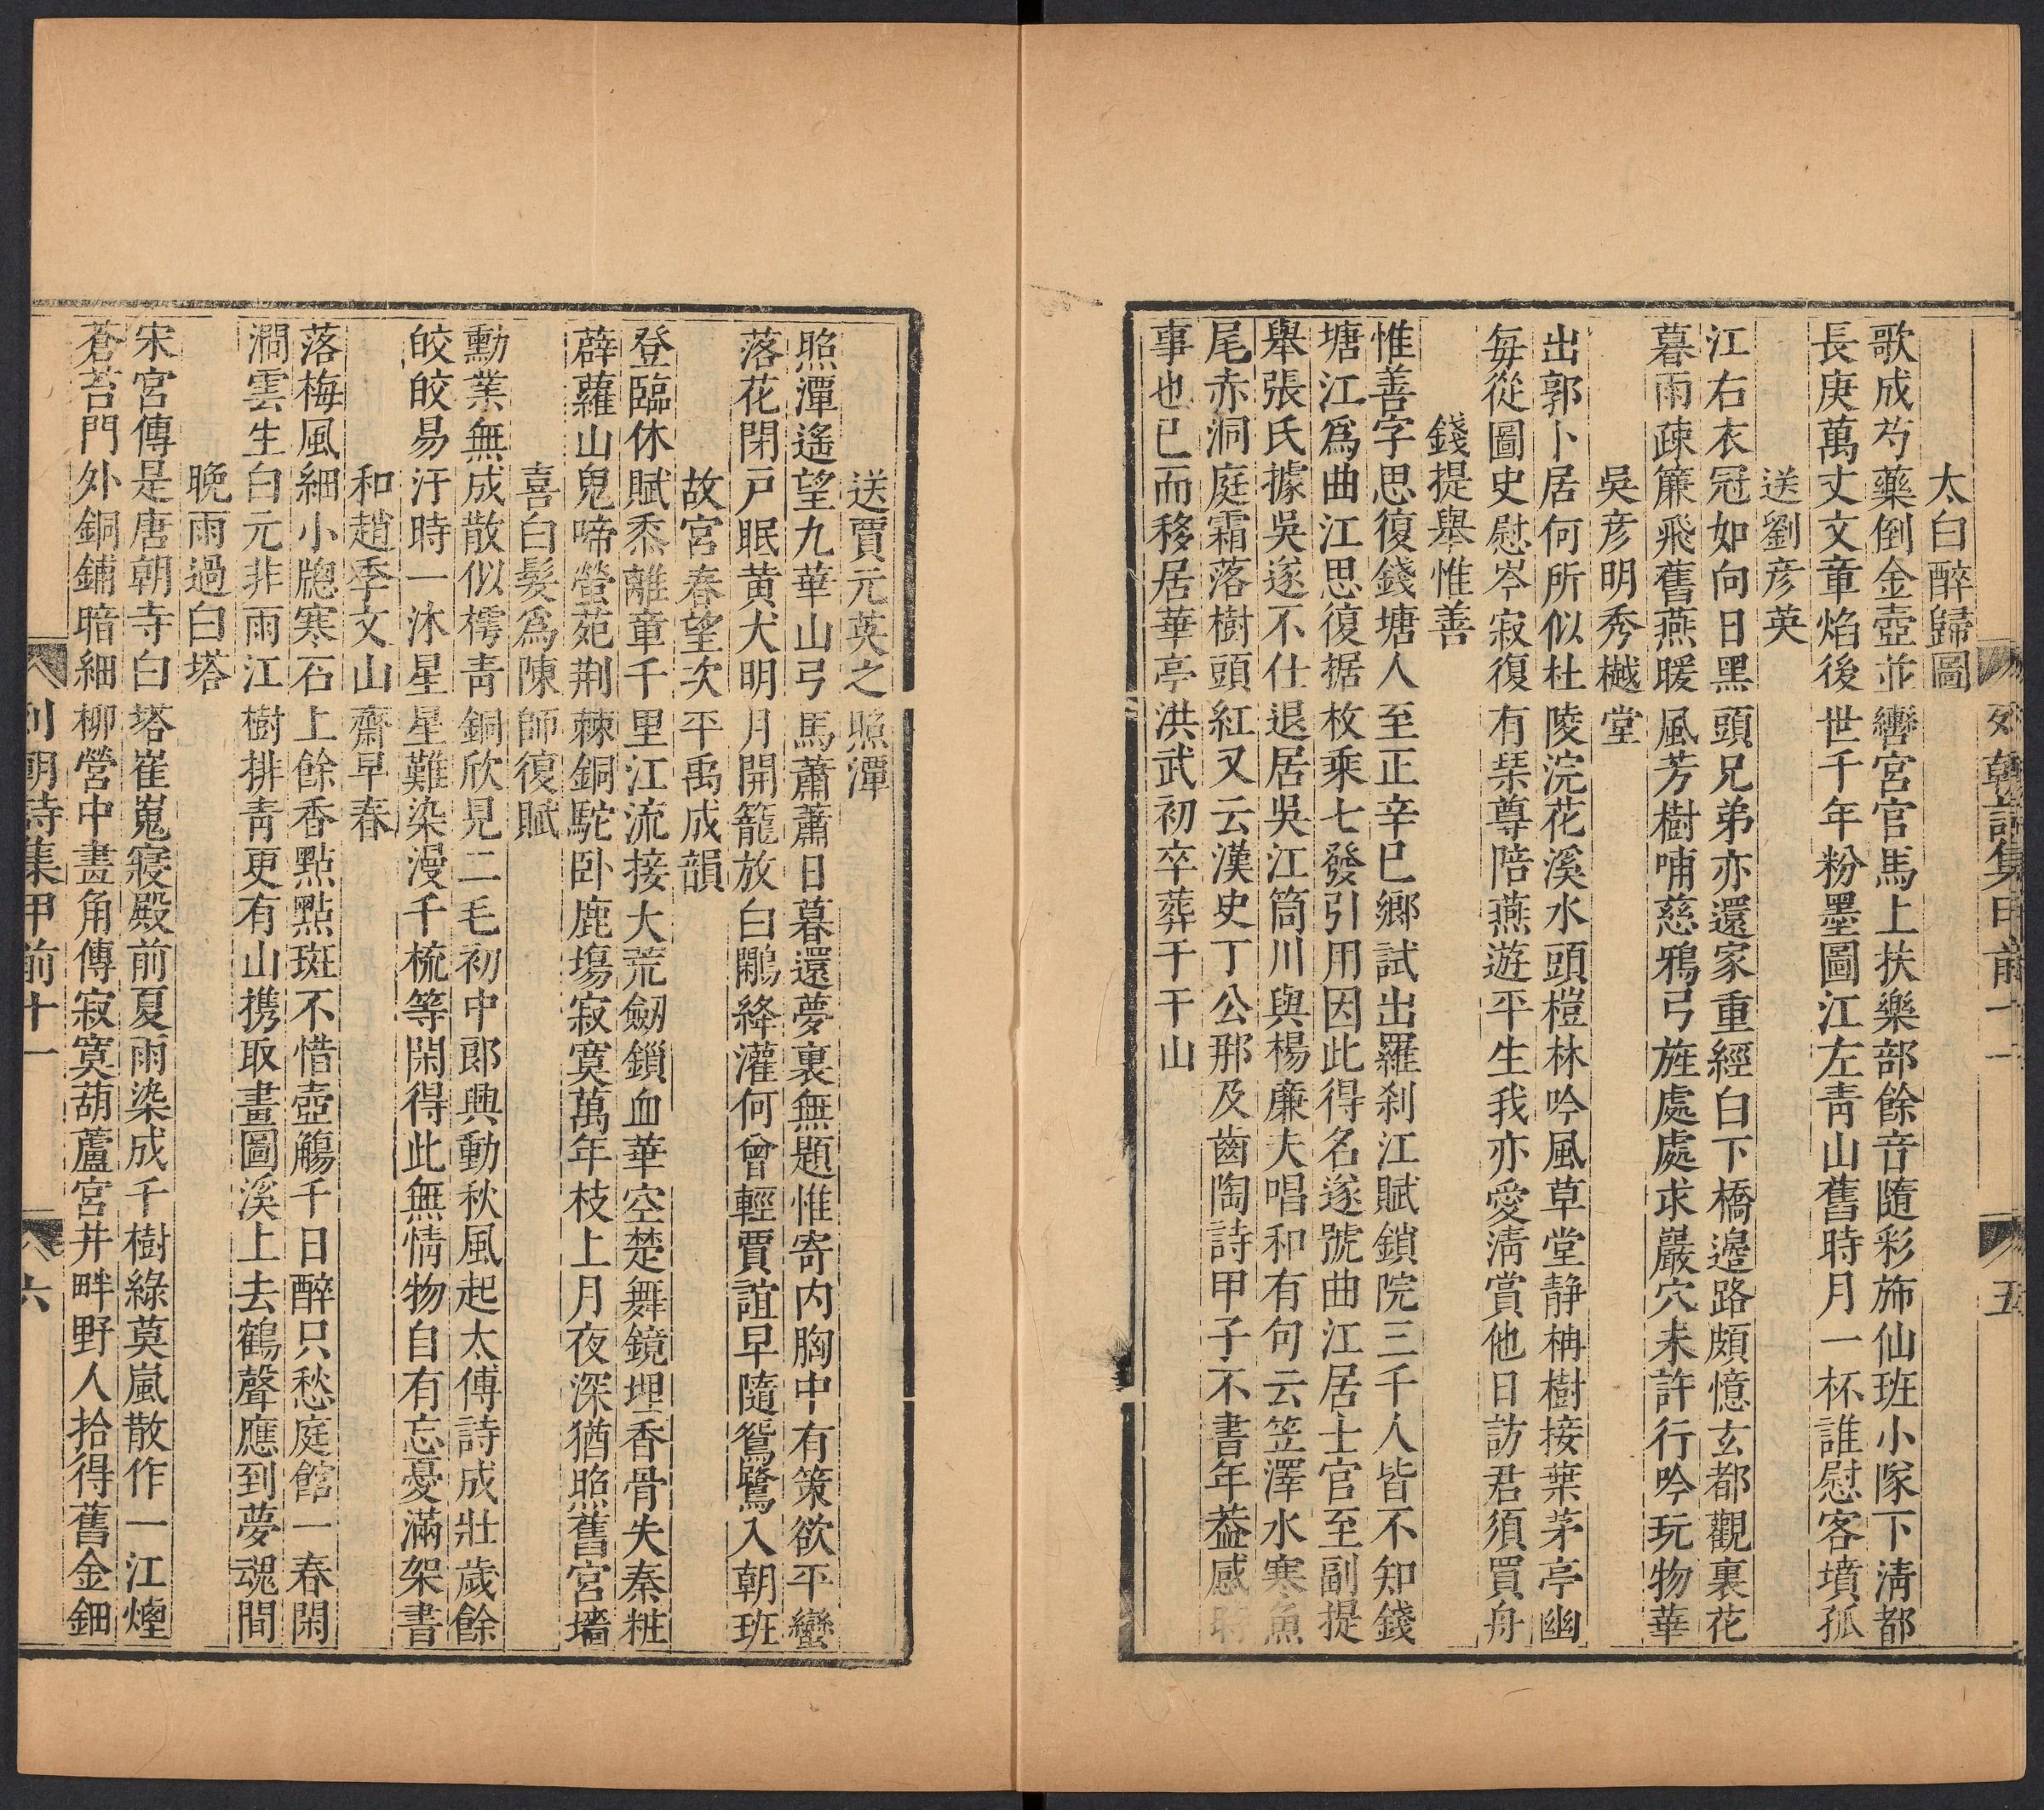 太白醉歸圖
歌成芍藥倒金壺並轡宮官馬上扶樂部餘音隨彩斾仙班小隊下淸都
長庚萬丈文章焰後世千年粉墨圖江左靑山舊時月一杯誰慰客墳孤
送劉彦英
江右衣冠如向日黑頭兄弟亦還家重經白下橋邊路頗憶玄都觀裏花
暮雨疎簾飛舊燕暖風芳樹哺慈鴉弓旌處處求嚴穴未許行吟玩物華
吳彦明秀樾堂
出郭卜居何所似杜陵浣花溪水頭榿林吟風草堂静柟樹接葉茅亭幽
每從圖史慰岑寂復有琹尊陪燕遊平生我亦愛淸賞他日訪君須買舟
錢提舉惟善
惟善字思復錢塘人至正辛巳鄉試出羅刹江賦鎖院三千人皆不知錢
塘江爲曲江思復据枚乘七發引用因此得名遂號曲江居士官至副提
舉張氏據吳遂不仕退居吳江筒川與楊廉夫唱和有句云笠澤水寒魚
尾赤洞庭霜落樹頭紅又云漢史丁公那及齒陶詩甲子不書年葢感時
事也已而移居華亭洪武初卒葬干干山
列朝詩集甲前十一 五
送賈元英之照潭
照潭遙望九華山弓馬蕭蕭日暮還夢裏無題惟寄内胸中有策欲平蠻
落花閉戸眠黄犬明月開籠放白鷴絳灌何曾輕賈誼早隨鴛鷺入朝班
故宮春望次平禹成韻
登臨休賦黍離章千里江流接大荒劒鎖血華空楚舞鏡埋香骨失秦粧
薜蘿山鬼啼螢苑荆棘銅駝卧鹿塲寂寞萬年枝上月夜深猶照舊宮墻
喜白髮爲陳師復賦
勳業無成散似樗靑銅欣見二毛初中郎興動秋風起太傅詩成壯歲餘
皎皎易汙時一沐星星難染漫千梳等閑得此無情物自有忘憂滿架書
和趙季文山齋早春
落梅風細小牕寒石上餘香點點斑不惜壺觴千日醉只愁庭館一春閑
澗雲生白元非雨江樹排靑更有山携取畫圖溪上去鶴聲應到夢魂間
晚雨過白塔
宋宮傳是唐朝寺白塔崔嵬寢殿前夏雨染成千樹綠莫嵐散作一江煙
蒼苔門外銅鋪暗細柳營中畫角傳寂寞葫蘆宮井畔野人拾得舊金鈿
列朝詩集甲前十一 六